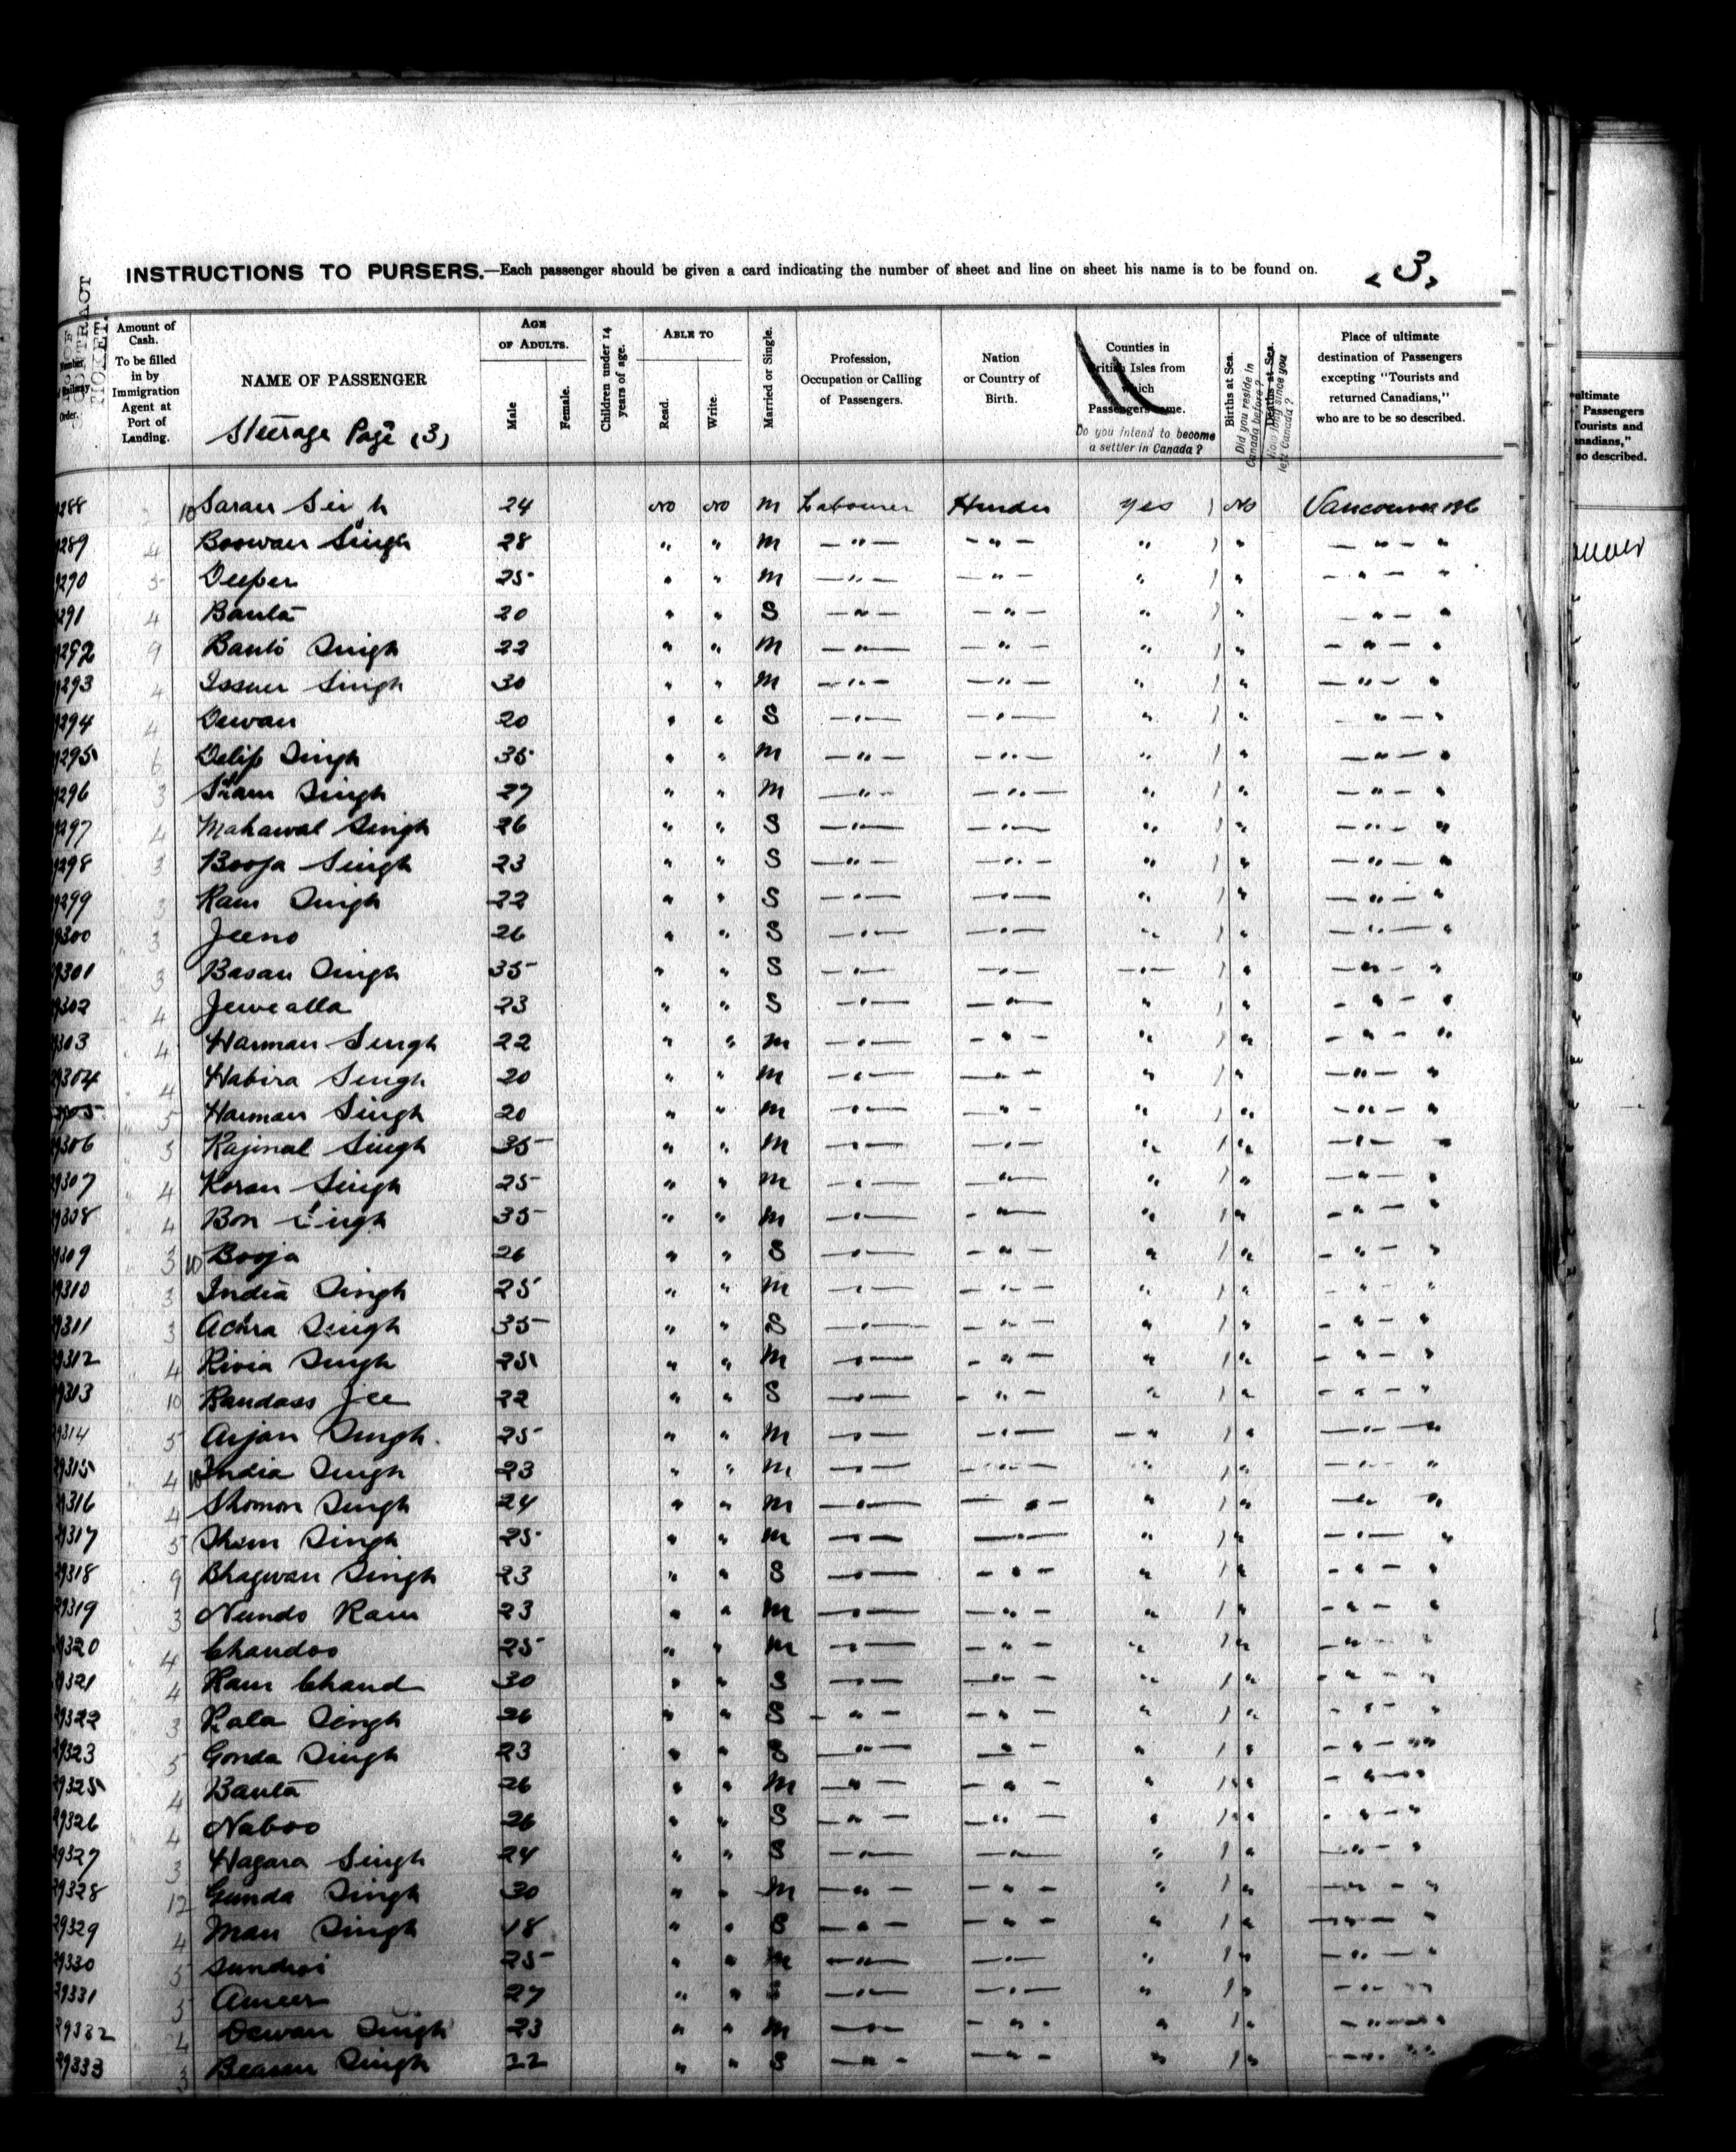 INSTRUCTIONS TO PURSERS.—Each passenger should be given a card indicating the number of sheet and line on sheet his name is to be found on. (3)
CONTRACT TICKET.
Number Railway Order.
Amount of Cash. To be filled in by Immigration Agent at Port of Landing.
NAME OF PASSENGER
Steerage Page (3)
AGE OF ADULTS.
Male
Female.
Children under 14 years of age.
ABLE TO
Read.
Write.
Married or Single.
Profession, Occupation or Calling of Passengers.
Nation or Country of Birth.
Counties in British Isles from which Passengers came.
Do you intend to become a settler in Canada?
Births at Sea.
Did you reside in Canada before?
Deaths at Sea.
How long since you left Canada?
Place of ultimate destination of Passengers excepting "Tourists and returned Canadians," who are to be so described.
288 10 Saran Singh 24 no no M Labourer Hindu Yes ) No Vancouver BC
289 4 Boowan Singh 28 " " M — " — — " — " ) " — " — "
290 5 Deeper 25 " " M — " — — " — " ) " — " — "
291 4 Banta 20 " " S — " — — " — " ) " — " — "
292 9 Banto Singh 22 " " M — " — — " — " ) " — " — "
293 4 Issuer Singh 30 " " M — " — — " — " ) " — " — "
294 4 Dewan 20 " " S — " — — " — " ) " — " — "
295 6 Delip Singh 35 " " M — " — — " — " ) " — " — "
296 3 Sham Singh 27 " " M — " — — " — " ) " — " — "
297 4 Mahawal Singh 26 " " S — " — — " — " ) " — " — "
298 3 Booja Singh 23 " " S — " — — " — " ) " — " — "
299 3 Ram Singh 22 " " S — " — — " — " ) " — " — "
9300 3 Jeeno 26 " " S — " — — " — " ) " — " — "
9301 3 Basan Singh 35 " " S — " — — " — — " — ) " — " — "
9302 4 Jewealla 23 " " S — " — — " — " ) " — " — "
9303 4 Harman Singh 22 " " M — " — — " — " ) " — " — "
9304 4 Habira Singh 20 " " M — " — — " — " ) " — " — "
9305 5 Harman Singh 20 " " M — " — — " — " ) " — " — "
9306 5 Rajinal Singh 35 " " M — " — — " — " ) " — " — "
9307 4 Koran Singh 25 " " M — " — — " — " ) " — " — "
9308 4 Bon Singh 35 " " M — " — — " — " ) " — " — "
9309 3 10 Booja 26 " " S — " — — " — " ) " — " — "
9310 3 India Singh 25 " " M — " — — " — " ) " — " — "
9311 3 Achra Singh 35 " " S — " — — " — " ) " — " — "
9312 4 Rivia Singh 25 " " M — " — — " — " ) " — " — "
9313 10 Randass Jee 22 " " S — " — — " — " ) " — " — "
9314 5 Arjan Singh 25 " " M — " — — " — — " ) " — " — "
29315 4 10 India Singh 23 " " M — " — — " — " ) " — " — "
29316 4 Shomon Singh 24 " " M — " — — " — " ) " — " — "
29317 5 Sham Singh 25 " " M — " — — " — " ) " — " — "
29318 9 Bhagwan Singh 23 " " S — " — — " — " ) " — " — "
29319 3 Nundo Ram 23 " " M — " — — " — " ) " — " — "
29320 4 Chandoo 25 " " M — " — — " — " ) " — " — "
29321 4 Ram Chand 30 " " S — " — — " — " ) " — " — "
29322 3 Kala Singh 26 " " S — " — — " — " ) " — " — "
29323 5 Gonda Singh 23 " " S — " — — " — " ) " — " — "
29325 4 Banta 26 " " M — " — — " — " ) " — " — "
29326 4 Naboo 26 " " S — " — — " — " ) " — " — "
29327 3 Hagara Singh 24 " " S — " — — " — " ) " — " — "
29328 12 Gunda Singh 30 " " M — " — — " — " ) " — " — "
29329 4 Man Singh 18 " " S — " — — " — " ) " — " — "
29330 5 Sundroi 25 " " M — " — — " — " ) " — " — "
29331 5 Ameer 27 " " S — " — — " — " ) " — " — "
29332 4 Dewan Singh 23 " " M — " — — " — " ) " — " — "
29333 3 Singh 22 " " S — " — — " — " ) " — " — "
ultimate
Passengers
Tourists and
anadians,"
so described.